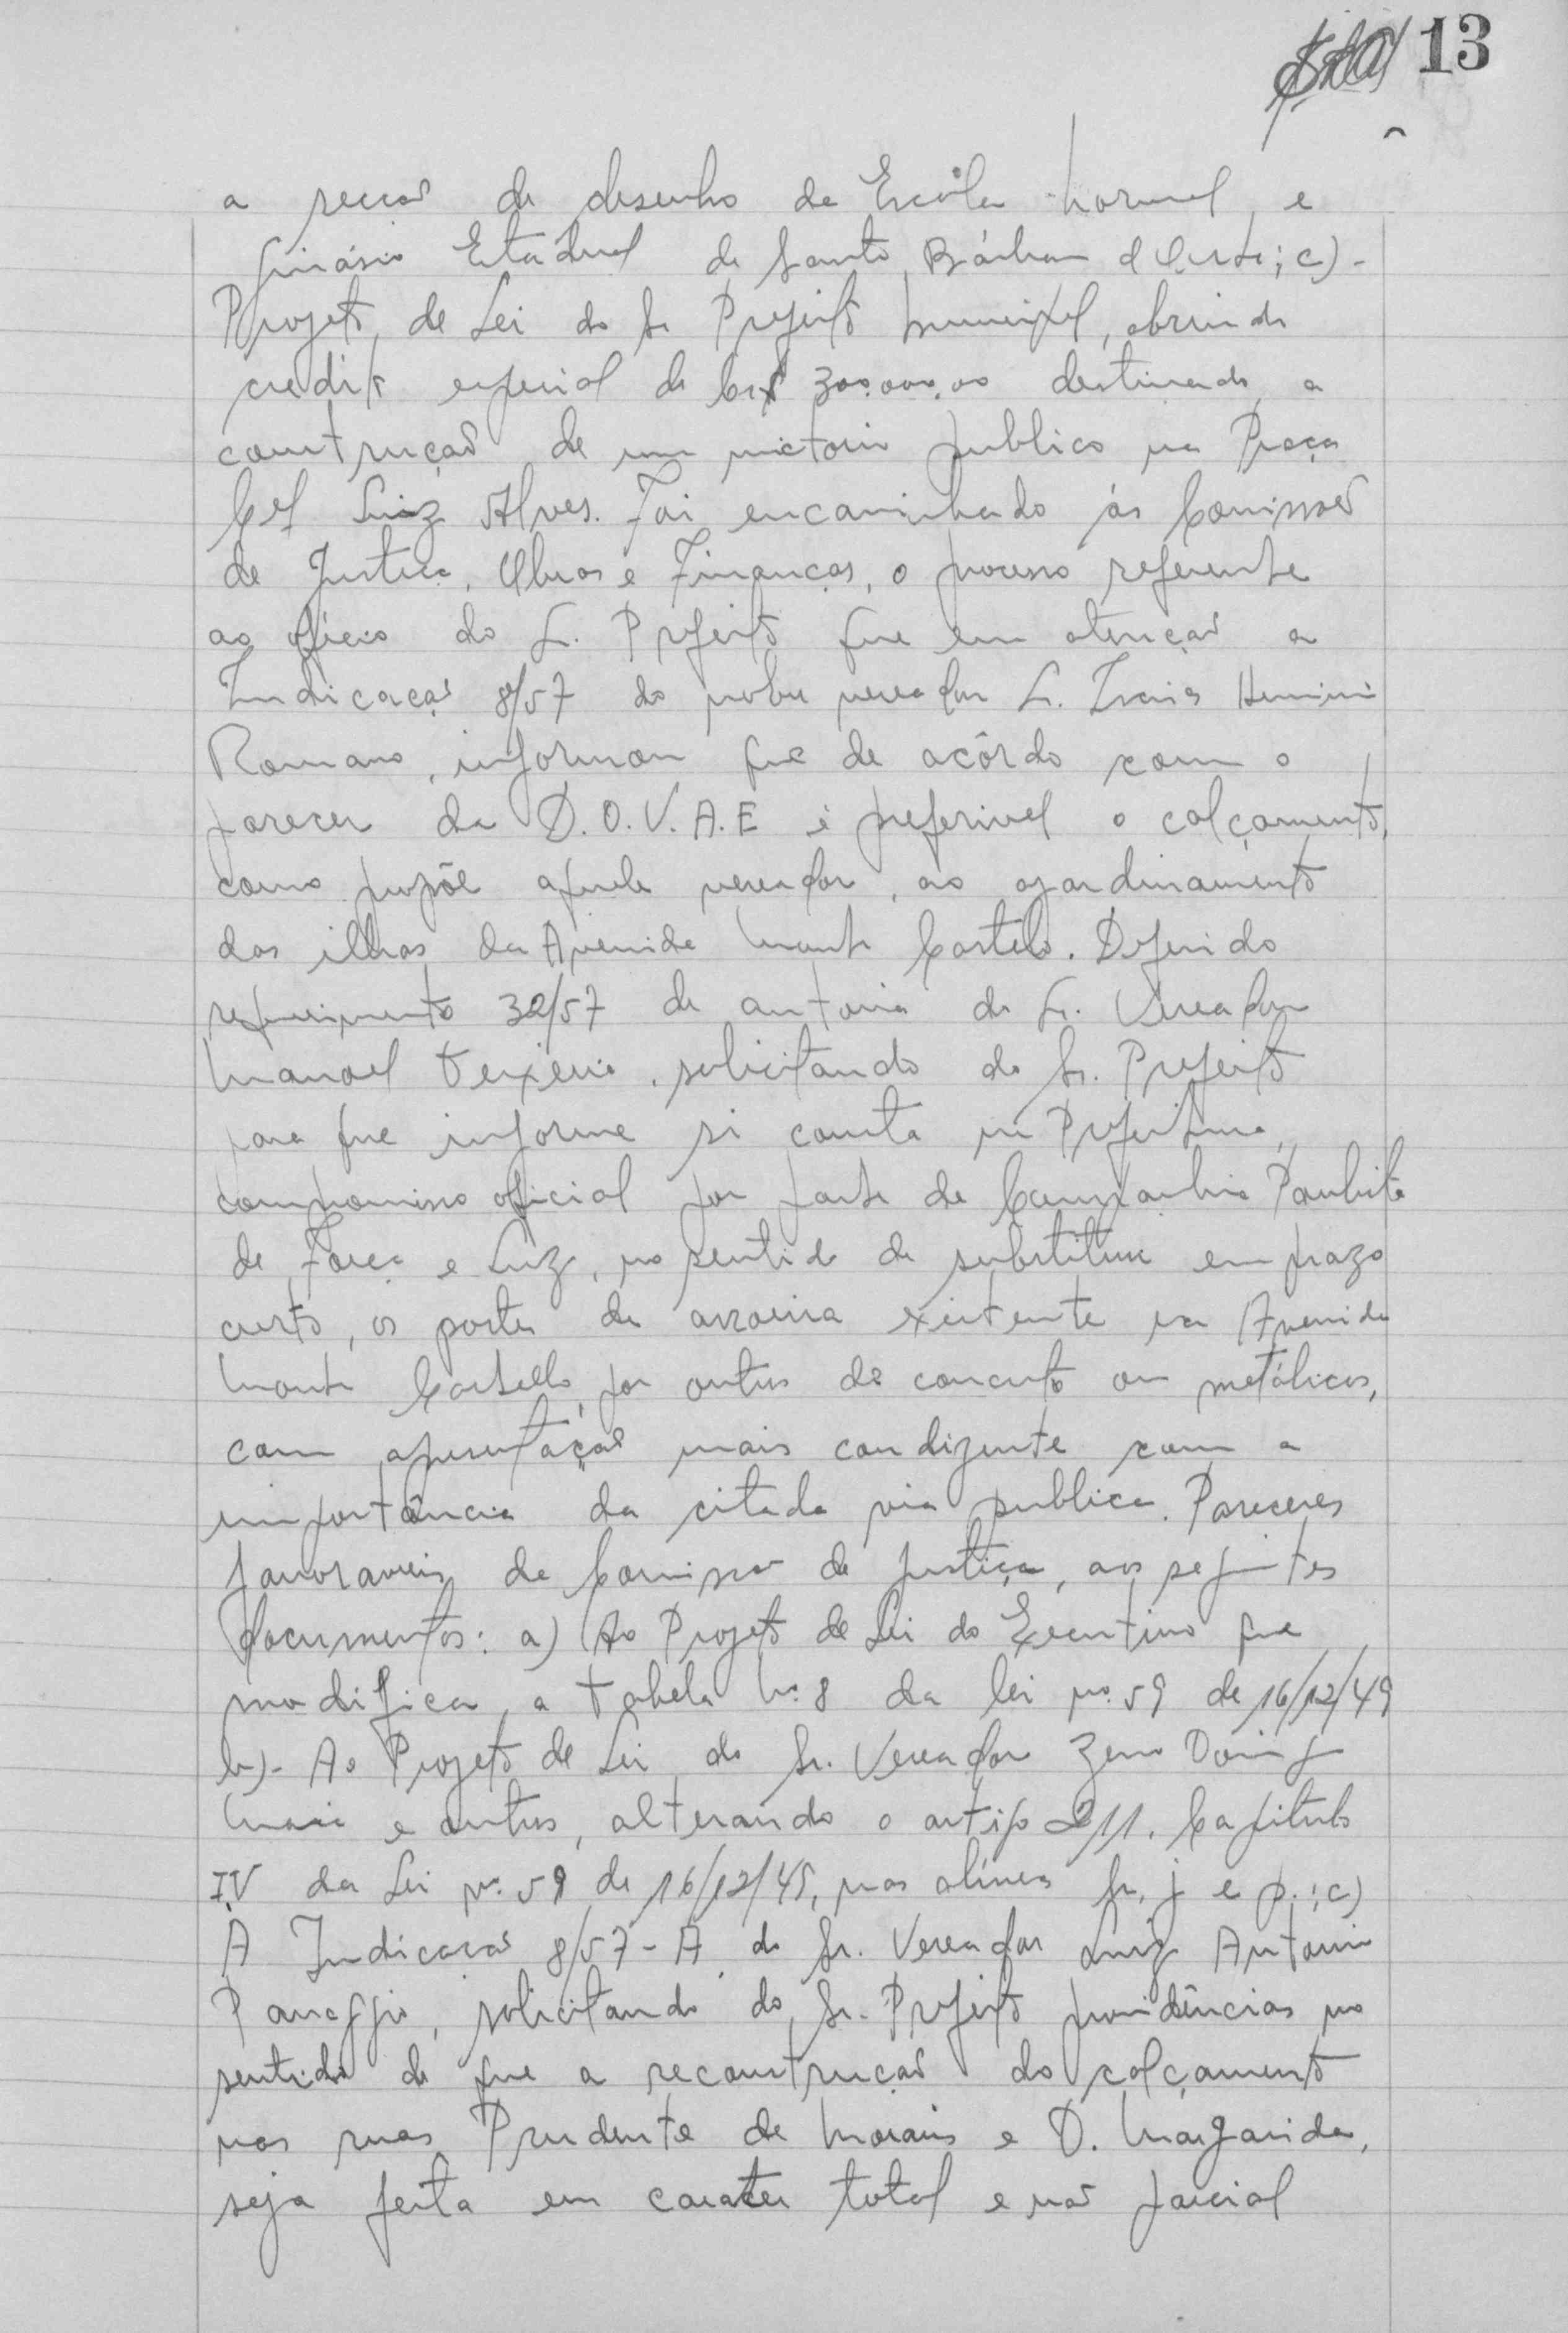 13
a secção de desenho da Escóla Normal, e
Ginásio Estadual de Santa Bárbara d'Oeste; c)-
Projeto de Lei do Sr Prefeito Municipal, abrindo
credito especial de Cr$ 300.000,00 destinado a
construção de um mictorio publico na Praça
Cel Luiz Alves. Foi encaminhado ás Comissões
de Justiça, Obras e Finanças, o processo referente
ao oficio do Sr. Prefeito que em atenção a
Indicação 8/57 do nobre vereador Sr. Isaias
Romano, informou que de acôrdo com o
parecer da D.O.V.A.E é preferivel o calçamento,
como propõe aquele vereador, ao ajardinamento
das ilhas da Avenida Monte Castelo. Deferido
requerimento 32/57 de autoria do Sr. Vereador
Manoel Teixeira, solicitando do Sr. Prefeito
para que informe si consta na Prefeitura,
compromisso oficial por parte da Companhia Paulista
de Força e Luz, no sentido de substituir em prazo
certo, os postes de aroeira existente na Avenida
Monte Castello, por outros de concreto ou metálicos,
com apresentação mais condizente com a
importância da citada via publica. Pareceres
favoraveis da Comissão de Justiça, aos seguintes
documentos: a) Ao Projeto de Lei do Executivo que
modifica a tabela nº 8 da lei nº 59 de 16/12/49
b)- Ao Projeto de Lei do Sr. Vereador Zeno
Maia e outros, alterando o artigo 211, Capitulo
IV da Lei nº 59 de 16/12/49, nas alíneas h, j e p.; c)
A Indicação 8/57-A do Sr. Vereador Luiz Antonio
Panaggio, solicitando do Sr. Prefeito providências no
sentido de que a reconstrução do calçamento
nas ruas Prudente de Morais e D. Margarida,
seja feita em carater total e não parcial